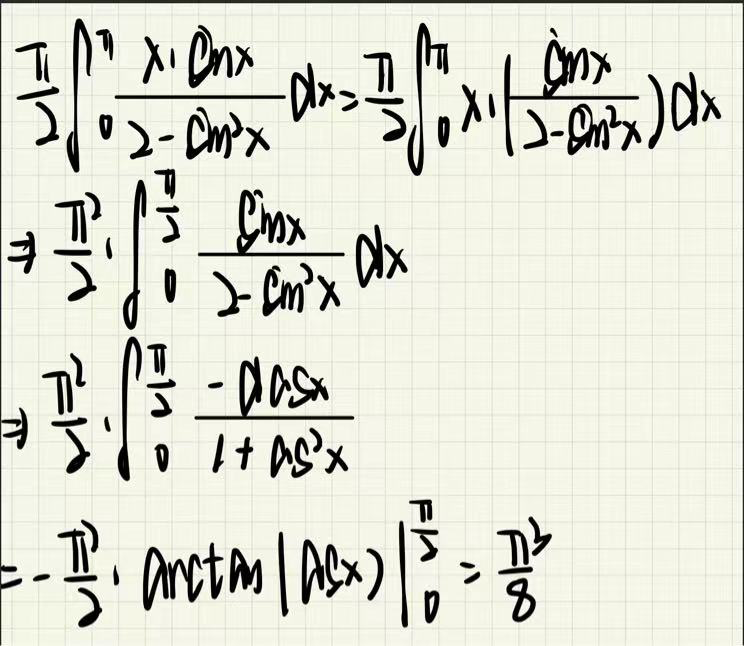 π/2 ∫₀^π x·sinx/(2-sin²x) dx = π/2 ∫₀^π x·(sinx/(2-sin²x)) dx
⇒ π²/2 · ∫₀^(π/2) sinx/(2-sin²x) dx
⇒ π²/2 · ∫₀^(π/2) -dcosx/(1+cos²x)
= -π²/2 · arctan(cosx)|₀^(π/2) = π³/8